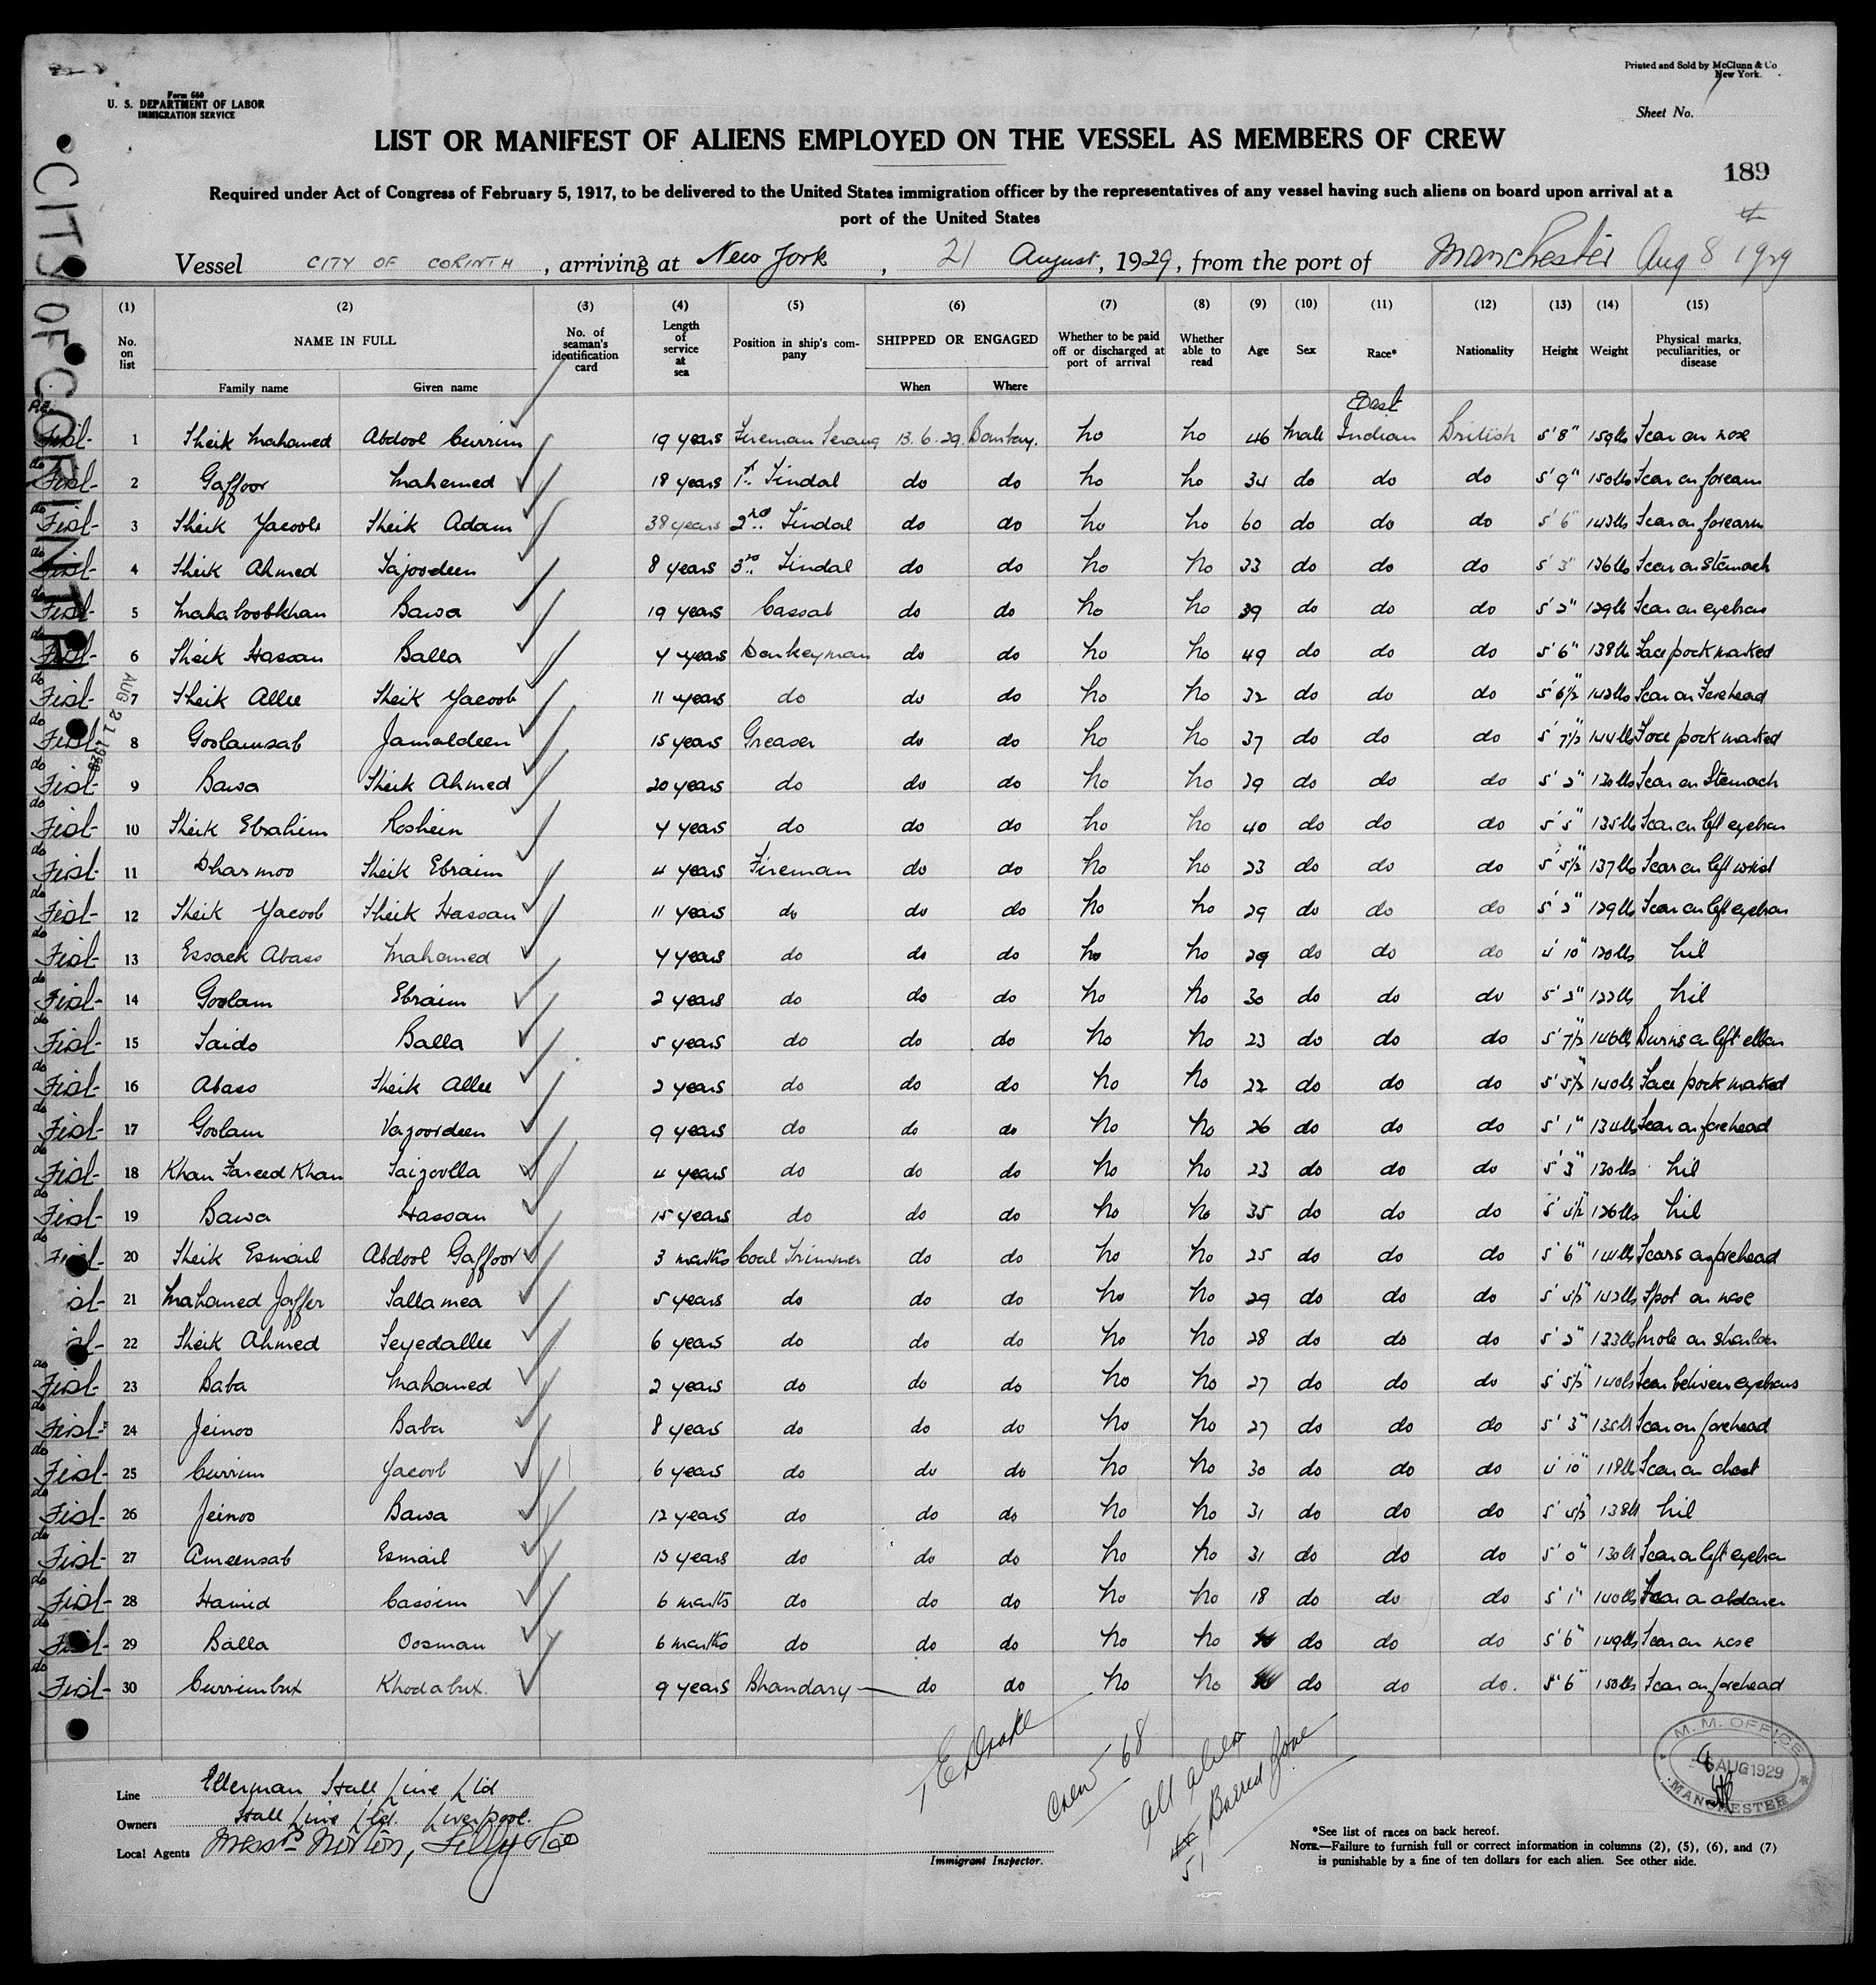 Form 680
U. S. DEPARTMENT OF LABOR
IMMIGRATION SERVICE
Printed and Sold by McClunn & Co
New York.
Sheet No.
LIST OR MANIFEST OF ALIENS EMPLOYED ON THE VESSEL AS MEMBERS OF CREW
189
Required under Act of Congress of February 5, 1917, to be delivered to the United States immigration officer by the representatives of any vessel having such aliens on board upon arrival at a
port of the United States
Vessel CITY OF CORINTH, arriving at New York, 21 August, 1929, from the port of Manchester Aug 8 1929
CITY OF CORINTH
AUG 21 1929
(1) (2) (3) (4) (5) (6) (7) (8) (9) (10) (11) (12) (13) (14) (15)
No. on list NAME IN FULL No. of seaman's identification card Length of service at sea Position in ship's company SHIPPED OR ENGAGED Whether to be paid off or discharged at port of arrival Whether able to read Age Sex Race* Nationality Height Weight Physical marks, peculiarities, or disease
Family name Given name When Where
1 Sheik Mahomed Abdool Currim 19 years Fireman Serang 13.6.29 Bombay. No No 46 Male East Indian British 5' 8" 159lbs Scar on nose
2 Gaffoor Mahomed 18 years 1st Tindal do do No No 34 do do do 5' 9" 150lbs Scar on forearm
3 Sheik Yacoob Sheik Adam 38 years 2nd Tindal do do No No 60 do do do 5' 6" 143lbs Scar on forearm
4 Sheik Ahmed Tajoodeen 8 years 3rd Tindal do do No No 33 do do do 5' 3" 136lbs Scar on stomach
5 Mahaboobkhan Bawa 19 years Cassab do do No No 39 do do do 5' 2" 129lb Scar on eyebrow
6 Sheik Hassan Balla 4 years Donkeyman do do No No 49 do do do 5' 6" 138lb Face pock marked
7 Sheik Allee Sheik Yacoob 11 years do do do No No 32 do do do 5' 6½ 143lbs Scar on Forehead
8 Goolamsab Jamaldeen 15 years Greaser do do No No 37 do do do 5' 7½ 144lbs Face pock marked
9 Bawa Sheik Ahmed 20 years do do do No No 39 do do do 5' 2" 130lbs Scar on Stomach
10 Sheik Ebrahim Roshein 4 years do do do No No 40 do do do 5' 5" 135lbs Scar on left eyebrow
11 Dharmoo Sheik Ebraim 4 years Fireman do do No No 23 do do do 5' 5½" 137lbs Scar on left wrist
12 Sheik Yacoob Sheik Hassan 11 years do do do No No 29 do do do 5' 2" 129lbs Scar on left eyebrow
13 Essack Abass Mahomed 4 years do do do No No 29 do do do 4' 10" 120lbs Nil
14 Goolam Ebraim 2 years do do do No No 30 do do do 5' 2" 122lbs Nil
15 Saido Balla 5 years do do do No No 23 do do do 5' 7½" 146lbs Burns on left elbow
16 Abass Sheik Allee 2 years do do do No No 22 do do do 5' 5½" 140lbs Face pock marked
17 Goolam Vazoordeen 9 years do do do No No 26 do do do 5' 1" 134lbs Scar on forehead
18 Khan Fareed Khan Faizoolla 4 years do do do No No 23 do do do 5' 3" 130lbs Nil
19 Bawa Hassan 15 years do do do No No 35 do do do 5' 4½" 126lbs Nil
20 Sheik Esmail Abdool Gaffoor 3 months Coal Trimmer do do No No 25 do do do 5' 6" 144lbs Scars on forehead
21 Mahomed Jaffer Sallamea 5 years do do do No No 29 do do do 142lbs Spot on nose
22 Sheik Ahmed Seyedallee 6 years do do do No No 28 do do do 5' 2" 133lbs Mole on shoulder
23 Baba Mahomed 2 years do do do No No 27 do do do 5' 5½" 140lbs Scar between eyebrows
24 Jeinoo Baba 8 years do do do No No 27 do do do 5' 3" 135lbs Scar on forehead
25 Currim Yacoob 6 years do do do No No 30 do do do 4' 10" 118lb Scar on chest
26 Jeinoo Bawa 12 years do do do No No 31 do do do 138lb Nil
27 Ameensab Esmail 13 years do do do No No 31 do do do 5' 0" 130lb Scar on left eyebrow
28 Hamid Cassim 6 months do do do No No 18 do do do 5' 1" 140lbs Scar on abdomen
29 Balla Oosman 6 months do do do No No do do do 5' 6" 149lbs Scar on nose
30 Currimbux Khodabux. 9 years Bhandary do do No No do do do. 5' 6 150lbs Scar on forehead
T E Drake
Crew 68
All aliens
51 Barred Zone
M. M. OFFICE
AUG 1929
MANCHESTER
Line Ellerman Hall Line Ltd
Owners Hall Line Ltd. Liverpool.
Local Agents Messrs Norton, Lilly & Co
Immigrant Inspector.
*See list of races on back hereof.
NOTE.—Failure to furnish full or correct information in columns (2), (5), (6), and (7)
is punishable by a fine of ten dollars for each alien. See other side.